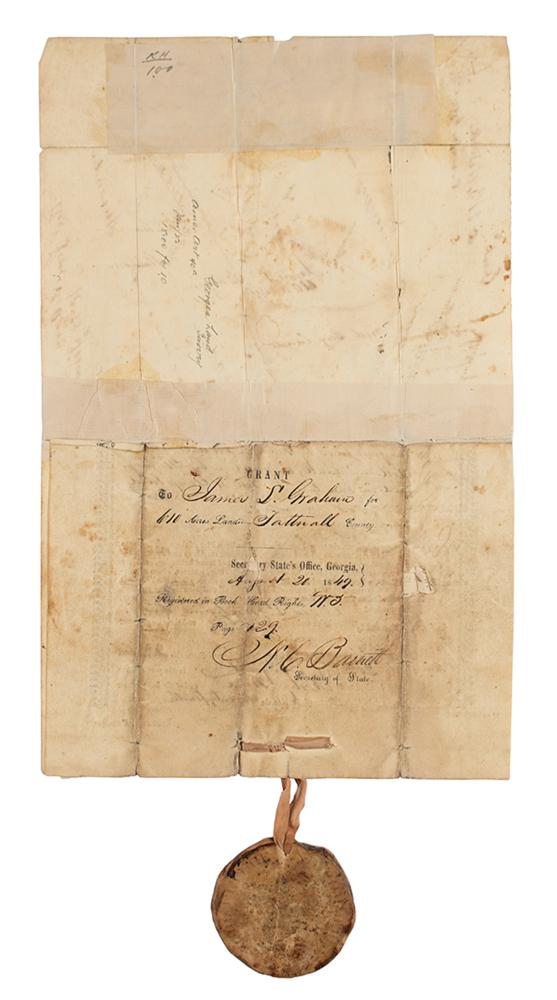 R.H
100
Georgia Land
Survey
GRANT
To James S. Graham for
Acres Land Tattnall County
Secretary State's Office, Georgia,
August 20 1849.
Registered in Book Head Rights,
Page 629.
N. C. Barnett
Secretary of State.